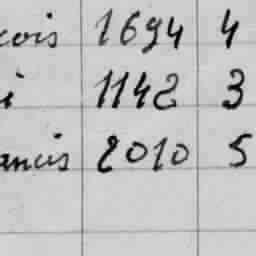 cois 1694 4
i 1142 3
ancis 2010 5